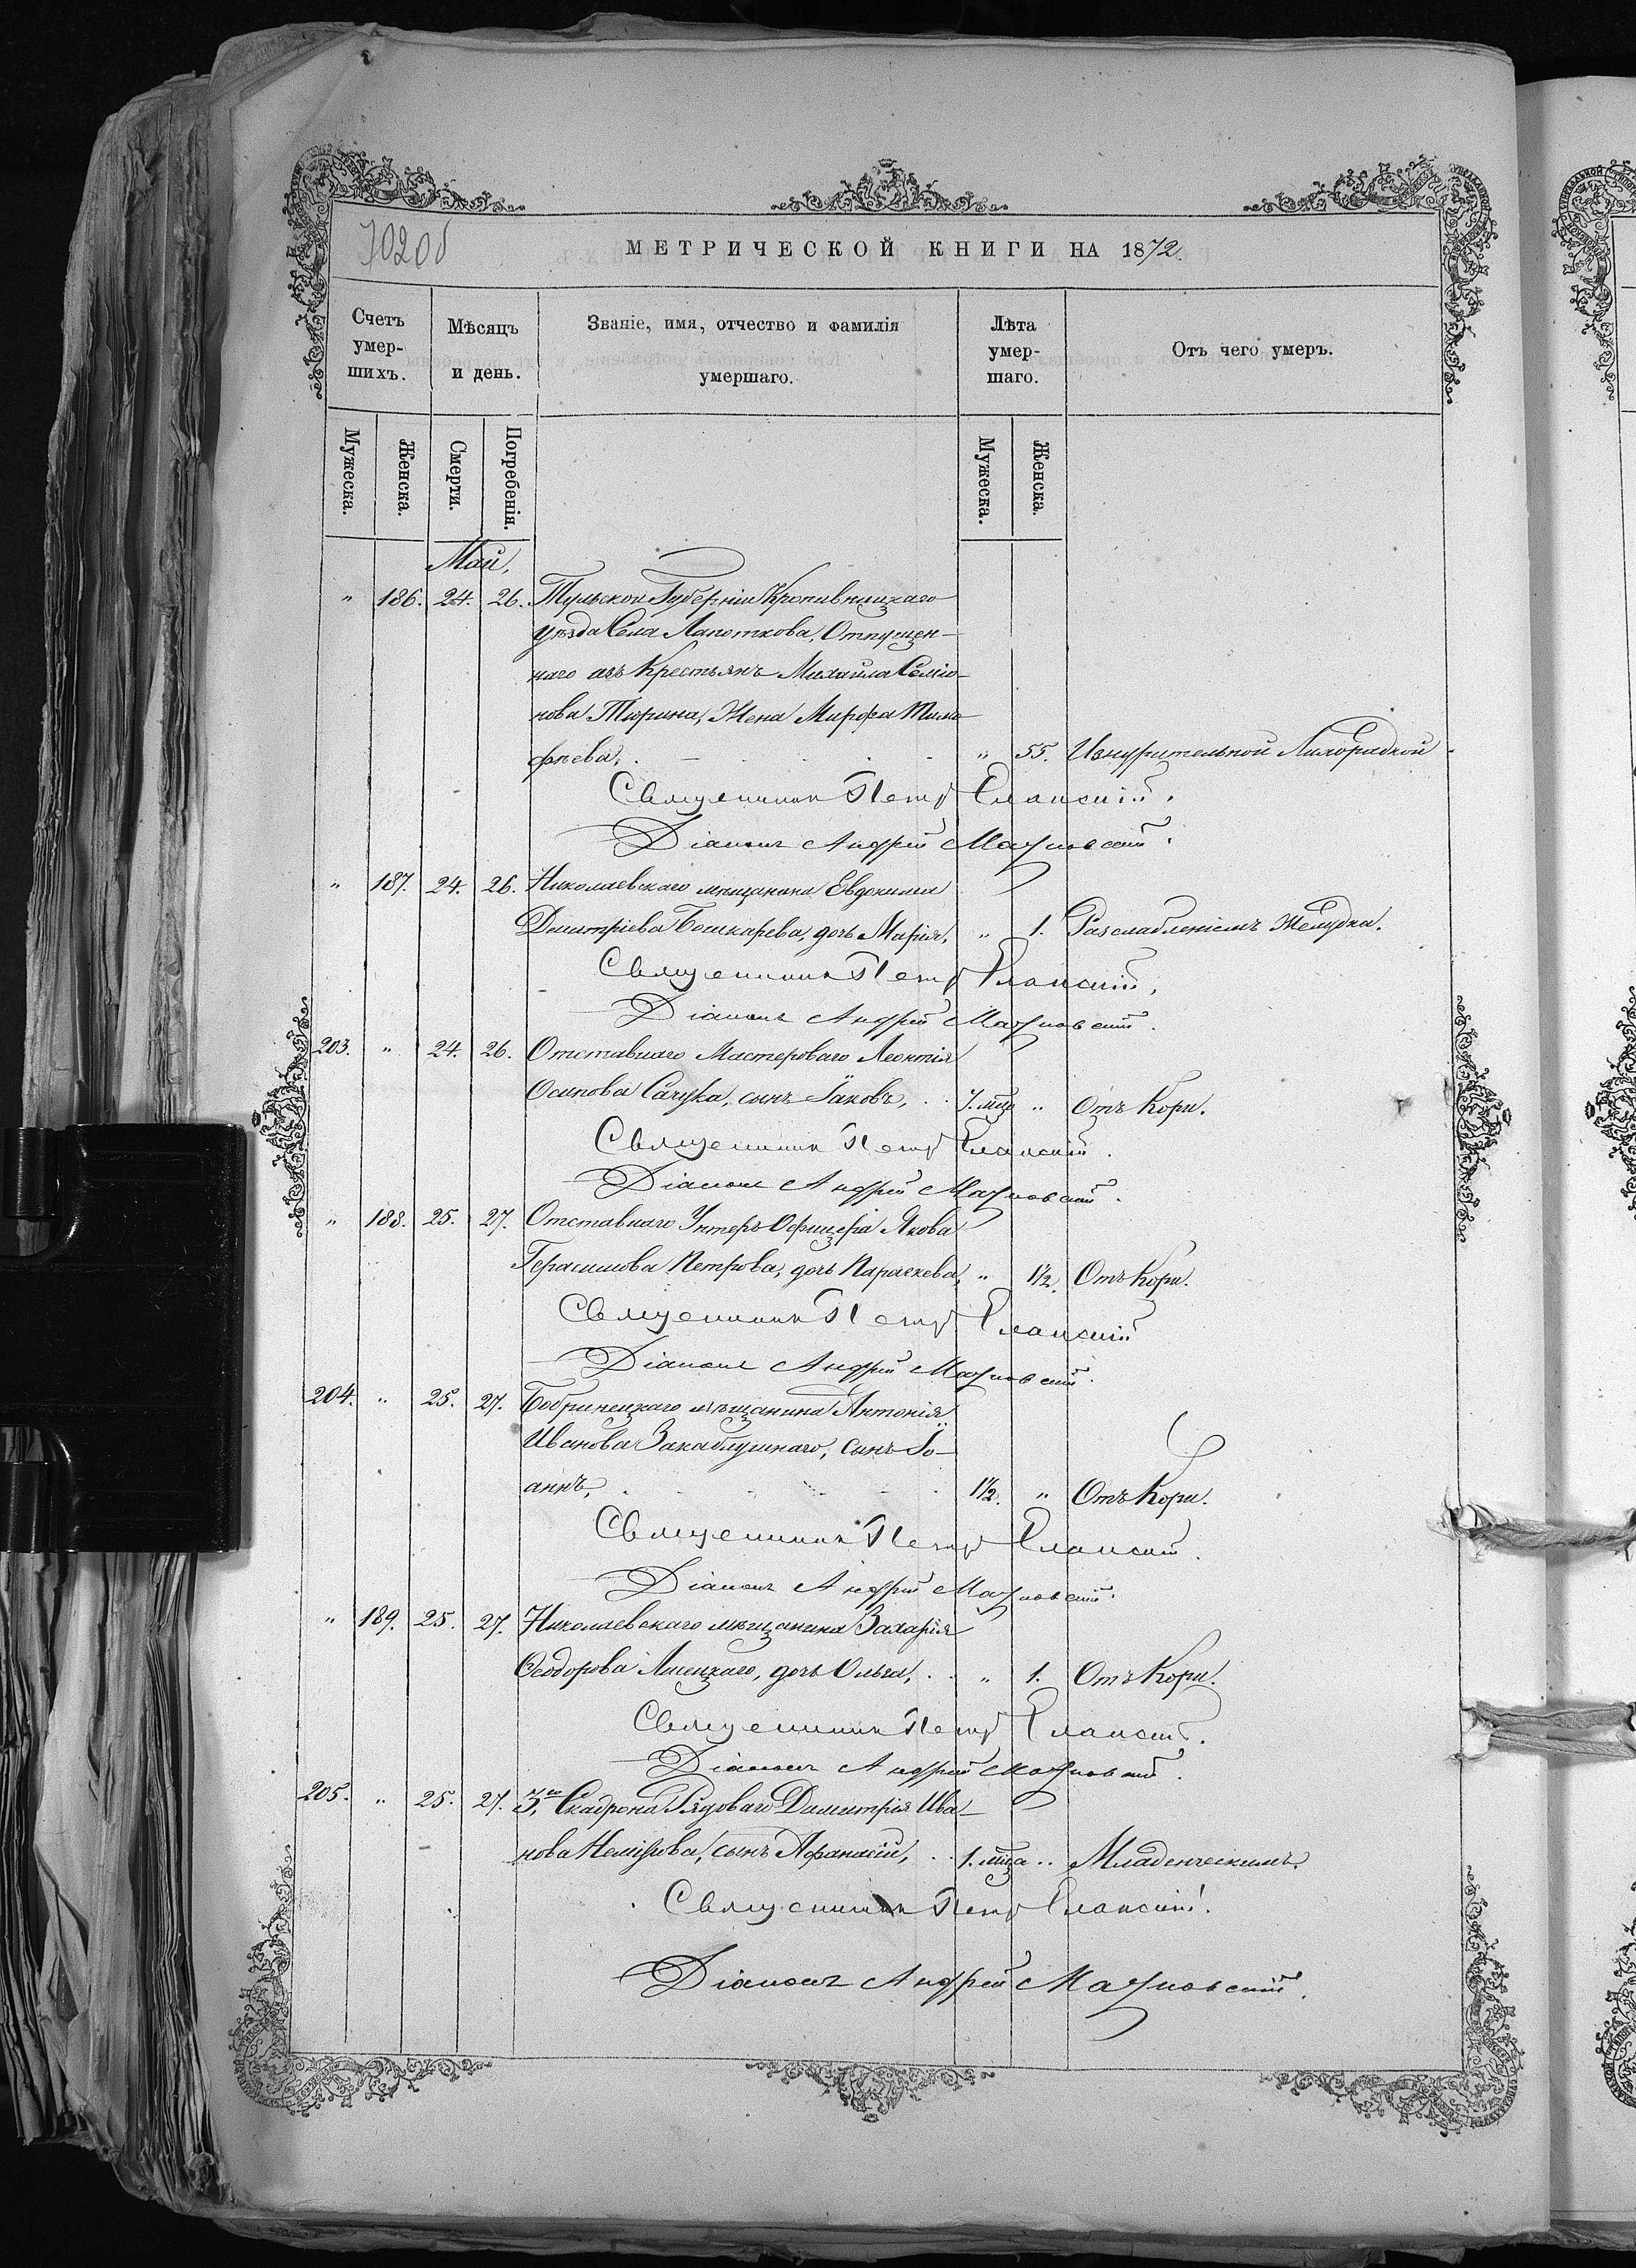 МЕТРИЧЕСКОЙ КНИГИ НА 1872.
Счетъ умер-шихъ.
Мѣсяцъ и день.
Званіе, имя, отчество и фамилія умершаго.
Лѣта умер-шаго.
Отъ чего умеръ.
Мужеска.
Женска.
Смерти.
Погребенія.
Мужеска.
Женска.
Май,
" 186. 24. 26. Тульской Губерніи Кропивницкаго
уѣзда Села Лапоткова, Отпущен-
наго изъ Крестьянъ Михаила Семіо-
нова Тюрина, Жена Марфа Тимо-
фѣева, " 55. Изнурительной Лихорадкой
Священникъ Петръ Еланскій.
Діаконъ Андрей
" 187. 24. 26. Николаевскаго мѣщанина Евдокима
Димитріева Бошкарева, дочь Марія, " 1. Разслабленіемъ Желудка.
Священникъ Петръ Еланскій.
Діаконъ Андрей
203. " 24. 26. Отставнаго Мастероваго Леонтія
Осипова Сачука, сынъ Іаковъ, 7. мцъ " Отъ Кори.
Священникъ Петръ Еланскій.
Діаконъ Андрей
" 188. 25. 27. Отставнаго Унтеръ-Офицера Якова
Герасимова Петрова, дочь Параскева, " 1½. Отъ Кори.
Священникъ Петръ Еланскій
Діаконъ Андрей
204. " 25. 27. Бобринецкаго мѣщанина Антонія
Иванова Закаблушнаго, сынъ Іо-
аннъ, 1½. " Отъ Кори.
Священникъ Петръ Еланскій.
Діаконъ Андрей
" 189. 25. 27. Николаевскаго мѣщанина Захарія
Ѳеодорова Лисецкаго, дочь Ольга, " 1. Отъ Кори.
Священникъ Петръ Еланскій.
Діаконъ Андрей
205. " 25. 27. 3го Скадрона Рядоваго Димитрія Ива-
нова сынъ Афанасій, 1. мца " Младенческимъ.
Священникъ Петръ Еланскій.
Діаконъ Андрей